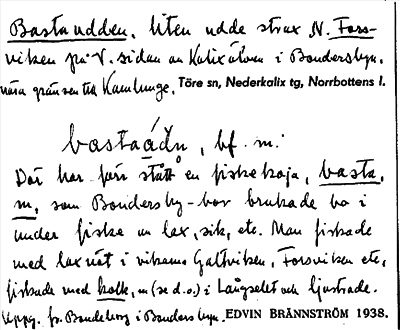 Bastaudden. Liten udde strax N. Fors-
viken på V. sidan av Kalixälven i Bondersbyn.
nära gränsen till Kamlunge. Töre sn, Nederkalix tg, Norrbottens l.
bastaádn, bf. m.
Där har förr stått en fiskekoja, basta,
m, som Bondersby-bor brukade bo i
under fiske av lax, sik, etc. Man fiskade
med laxnät i vikarna Galtviken, Forsviken etc,
fiskade med kolk, m (se d.o.) i Långselet och ljustrade.
Uppg. fr. Bondeborg i Bondersbyn. EDVIN BRÄNNSTRÖM 1938.